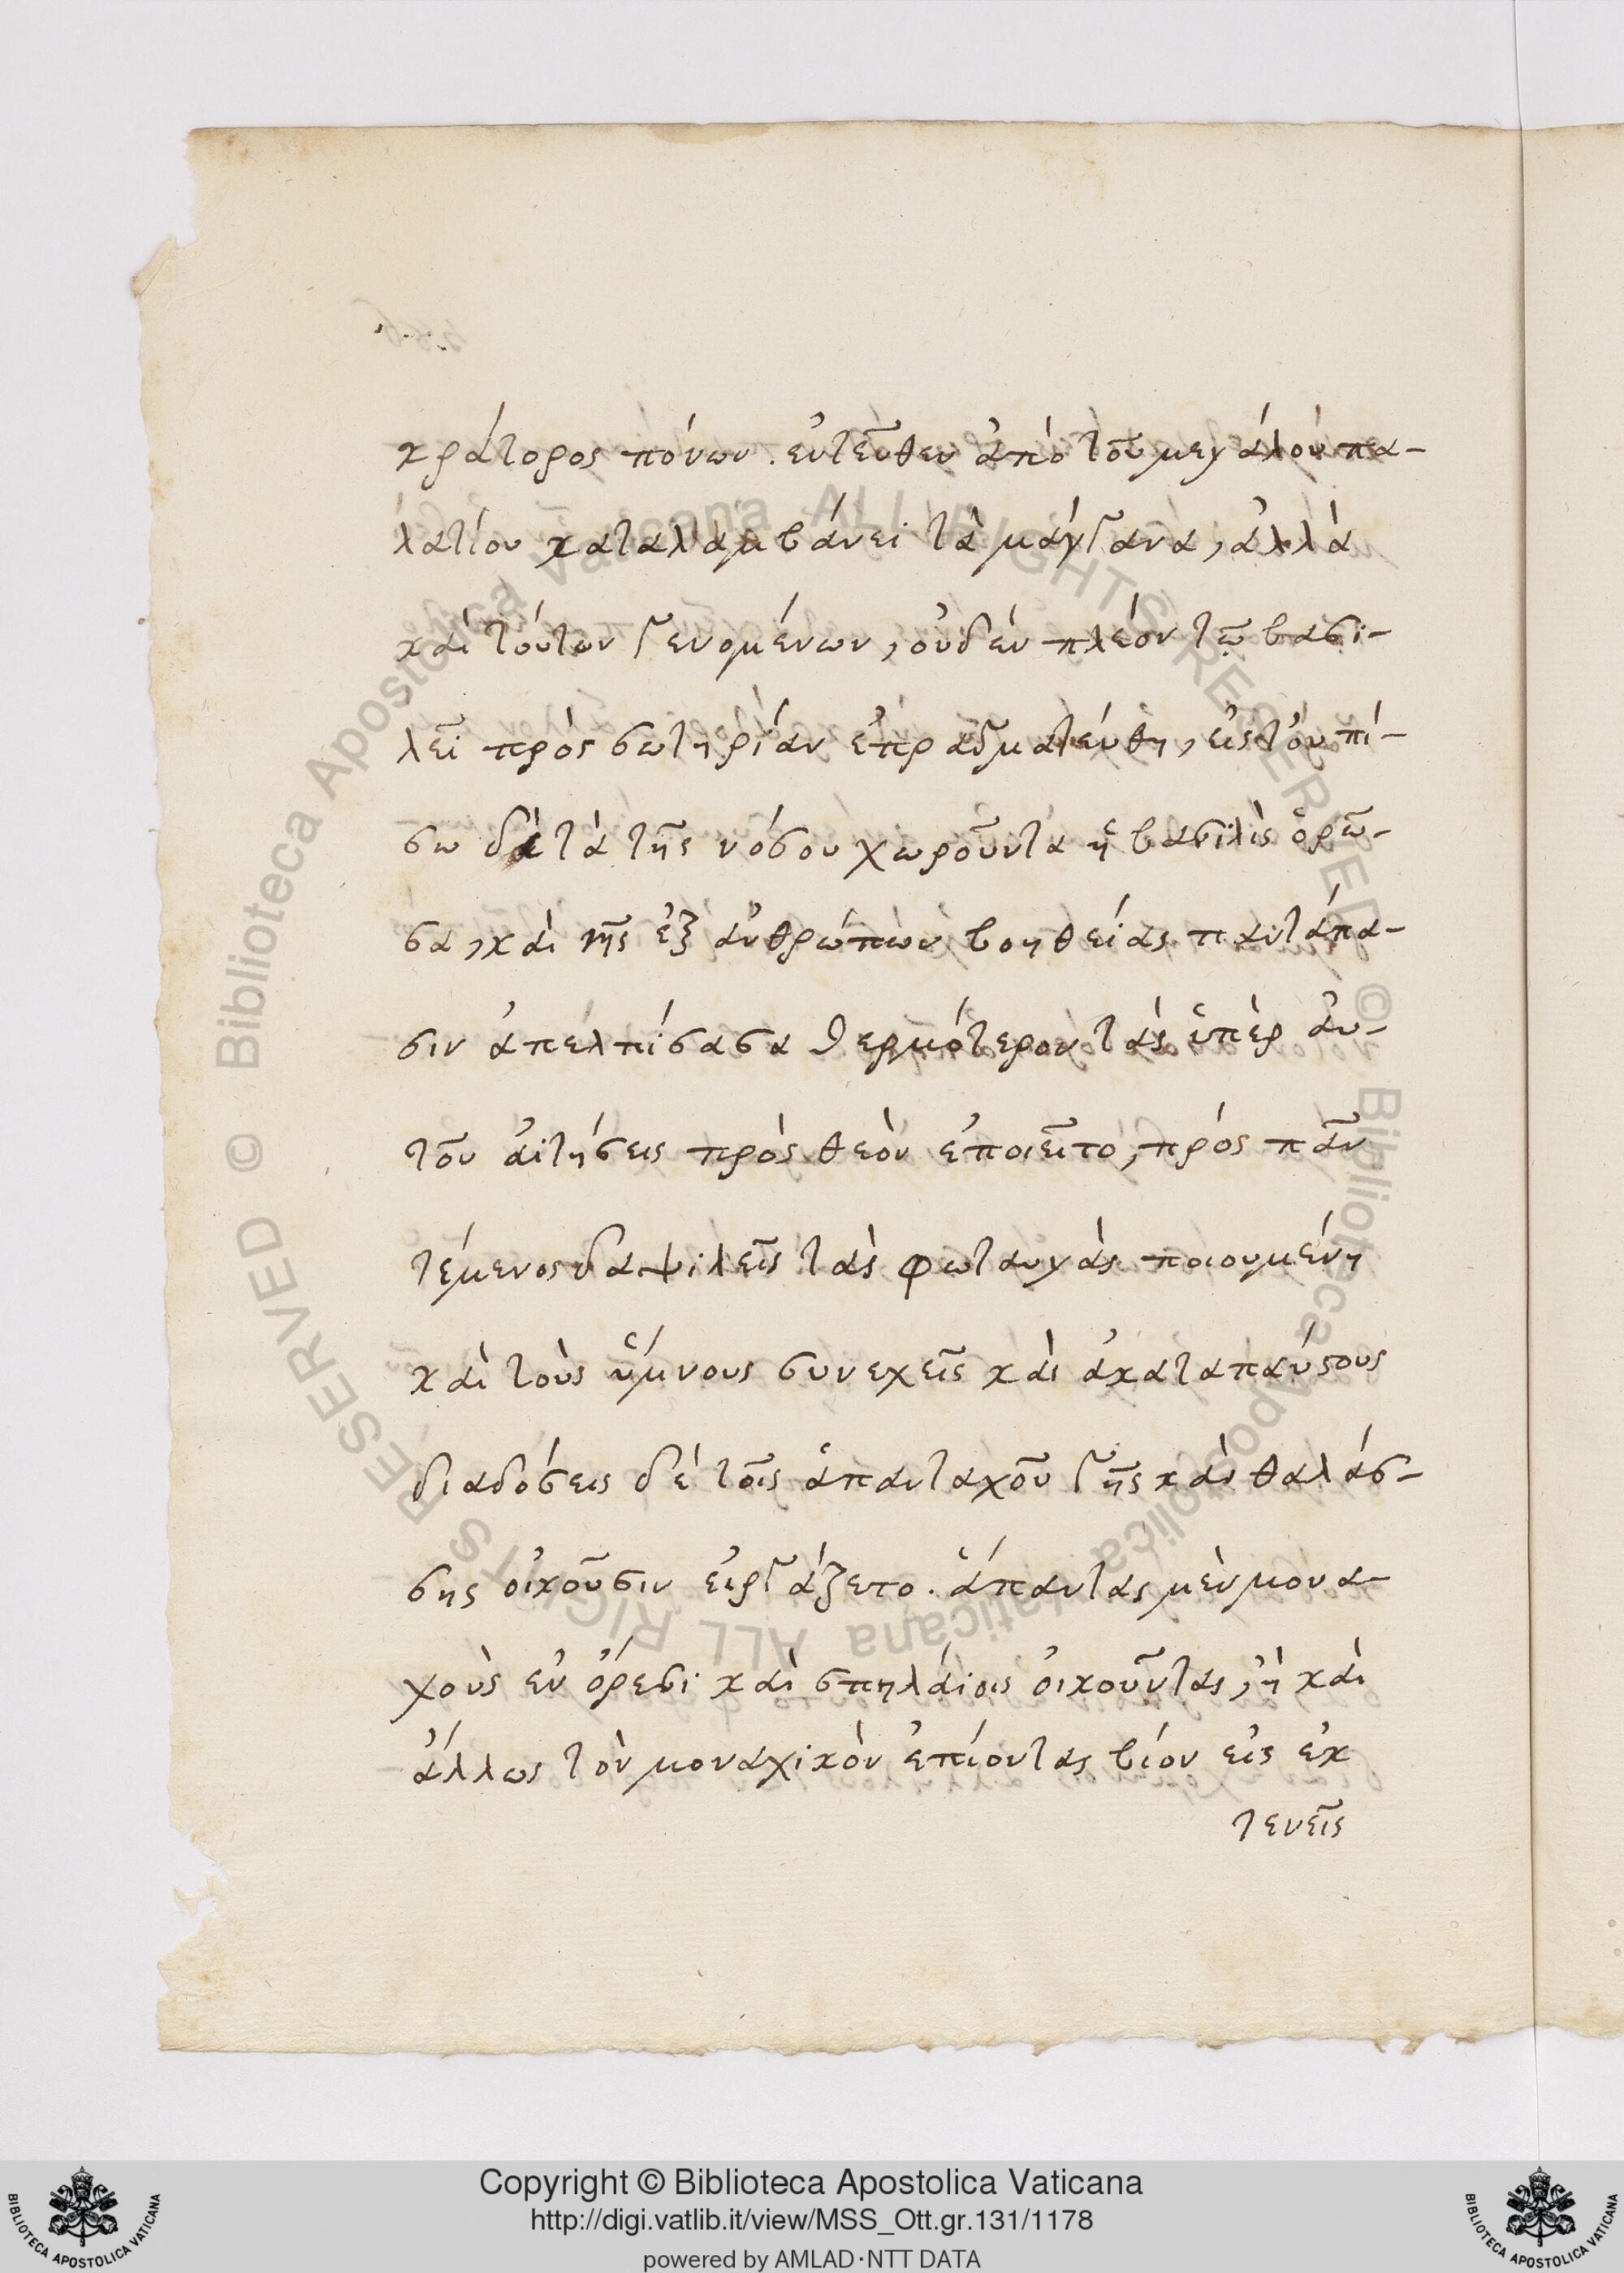 κράτορος πόνων. ἐντεῦθεν ἀπὸ τοῦ μεγάλου πα-
λατίου καταλαμβάνει τὰ μάγγανα, ἀλλὰ
καὶ τούτων γενομένων, οὐδέν πλέον τῷ βασι-
λεῖ πρὸς σωτηρίαν ἐπραγματεύθη, εἰς τὸν πί-
σω δὲ τὰ τῆς νόσου χωροῦντα ἡ βασιλὶς ὁρῶ-
σα, καὶ τῆς ἐξ ἀνθρώπων βοηθείας παντάπα-
σιν ἀπελπίσασα θερμότερον τὰς ὑπὲρ αὐ-
τοῦ αἰτήσεις πρὸς θεὸν ἐποιεῖτο, πρὸς πᾶν
τέμενος δαψιλεῖς τὰς φωταυγὰς ποιουμένη
καὶ τοὺς ὕμνους συνεχεῖς καὶ ἀκαταπαύστους
διαδόσεις δὲ τοῖς ἁπανταχοῦ γῆς καὶ θαλάσ-
σης οἰκοῦσιν εἰργάζετο. ἅπαντας μὲν μονα-
χοὺς ἐν ὄρεσι καὶ σπηλαίοις οἰκοῦντας, ἢ καὶ
ἄλλως τὸν μοναχικὸν ἐπίοντας βίον εἰς ἐκ
τενεῖς
Copyright © Biblioteca Apostolica Vaticana
http://digi.vatlib.it/view/MSS_Ott.gr.131/1178
powered by AMLAD·NTT DATA
© Biblioteca Apostolica Vaticana ALL RIGHTS RESERVED
© Biblioteca Apostolica Vaticana ALL RIGHTS RESERVED
BIBLIOTECA APOSTOLICA VATICANA
BIBLIOTECA APOSTOLICA VATICANA